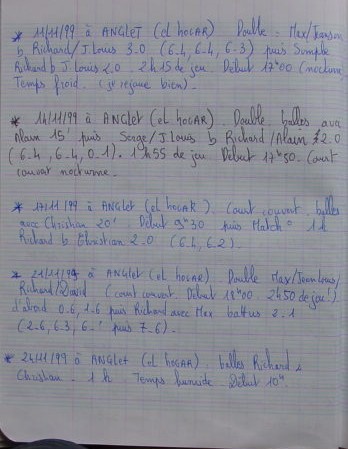 * 11/11/99 à ANGLET (el HOGAR) Double : Max/
b Richard/J.Louis 3.0 (6.4, 6.4, 6.3) puis Simple
Richard b J.Louis 2.0. 2h15 de jeu Début 17h00 (nocturne)
Temps froid. (je rejoue bien).
* 14/11/99 à ANGLET (el HOGAR). Double, balles avec
Alain 15' puis Serge/J.Louis b Richard/Alain 2.0
(6.4, 6.4, 0.1). 1h55 de jeu Début 17h50. Court
couvert nocturne.
* 17/11/99 à ANGLET (el HOGAR). Court couvert, balles
avec Christian 20' Début 9h30 puis Match 1h
Richard b Christian 2.0 (6.4, 6.2).
* 21/11/99 à ANGLET (el HOGAR). Double Max/Jean Louis/
Richard/David (court couvert. Début 18h00. 2h50 de jeu!)
d'abord 0.6, 1.6 puis Richard avec Max battus 2.1
(2-6, 6.3, 6- puis 7-6).
* 24/11/99 à ANGLET (el HOGAR), balles Richard &
Christian. 1h. Temps humide Début 10h.